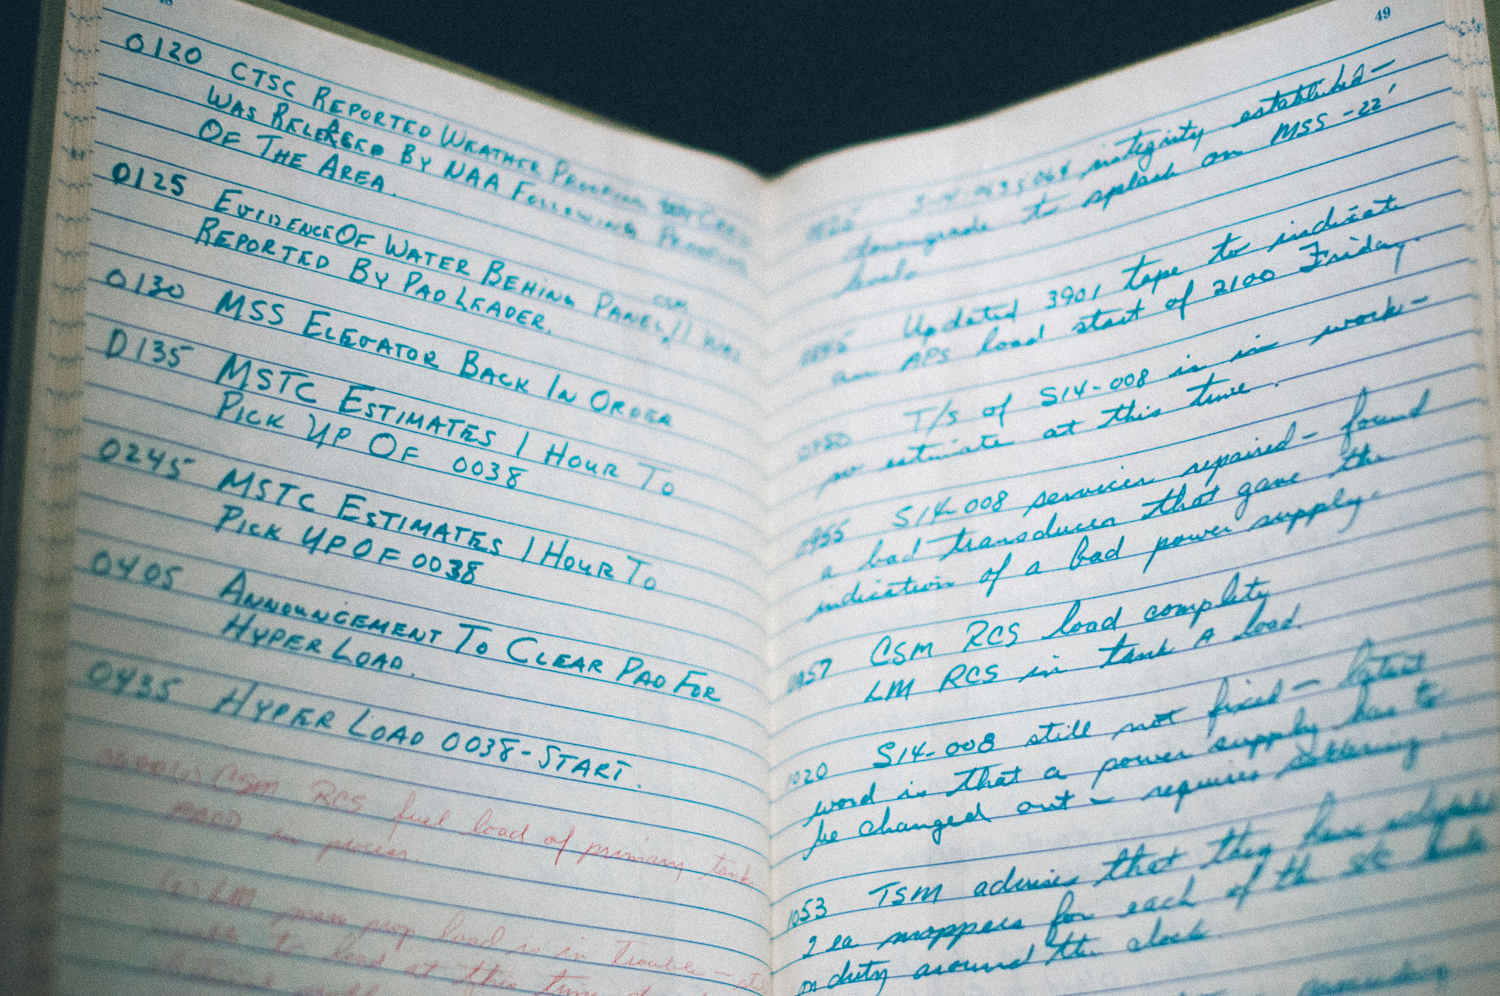 0120 CTSC REPORTED WEATHER PROOFING
WAS RELEASED BY NAA FOLLOWING
OF THE AREA.
0125 EVIDENCE OF WATER BEHIND PANEL WAS
REPORTED BY PAD LEADER.
0130 MSS ELEVATOR BACK IN ORDER
0135 MSTC ESTIMATES 1 HOUR TO
PICK UP OF 0038
0245 MSTC ESTIMATES 1 HOUR TO
PICK UP OF 0038
0405 ANNOUNCEMENT TO CLEAR PAD FOR
HYPER LOAD.
0435 HYPER LOAD 0038-START.
CSM RCS fuel load of primary tank
in process.
LM prop load is in trouble —
to load at this time
49
integrity established —
downgrade to splash on MSS -22'
levels
Updated 3901 tape to indicate
an APS load start of 2100 Friday.
T/S of S14-008 is in work —
no estimate at this time.
0955 S14-008 services repaired — found
a bad transducer that gave the
indication of a bad power supply.
0957 CSM RCS load complete
LM RCS in tank A load.
1020 S14-008 still not fixed — latest
word is that a power supply has to
be changed out — requires
1053 TSM advises that they have
2 ea moppers for each of the
on duty around the clock.